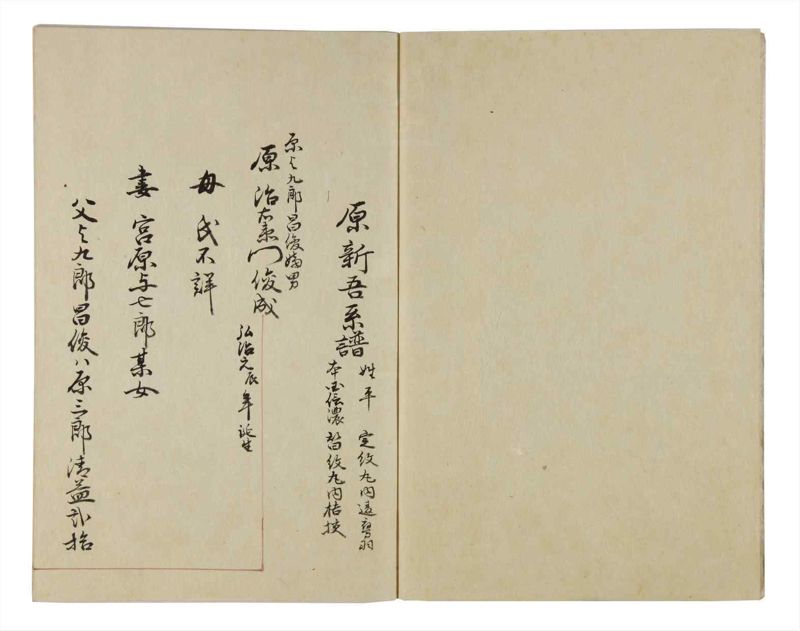 原新吾系譜
姓平 定紋丸内違鷹羽
本国信濃 替紋丸内桔梗
原与九郎昌俊嫡男
原治右衛門俊成
弘治元辰年誕生
母氏不詳
妻宮原与七郎某女
父与九郎昌俊ハ原三郎清益弐拾